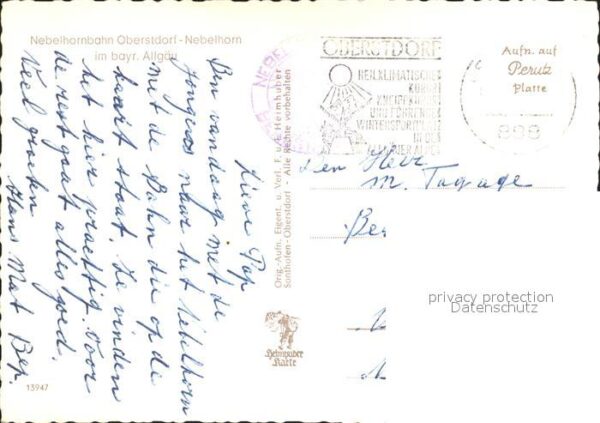 Nebelhornbahn Oberstdorf - Nebelhorn
im bayr. Allgäu
Lieve Pap
Ben vandaag met de
jongens naar het Nebelhorn
met de Bahn die op de
kaart staat. Ze vinden
het hier prachtig. Voor
de rest gaat alles goed.
Veel groeten
Hans Mat Bep.
13947
Orig.-Aufn. Eigent. u. Verl. F. u. E. Heimhuber
Sonthofen-Oberstdorf - Alle Rechte vorbehalten
Heimhuber
Karte
OBERSTDORF
HEILKLIMATISCHER
KURORT
KNEIPPKURORT
UND FÜHRENDER
WINTERSPORTPLATZ
IN DEN
ALLGÄUER ALPEN
Aufn. auf
Perutz
Platte
899
den Heer
M.
Ber
privacy protection
Datenschutz